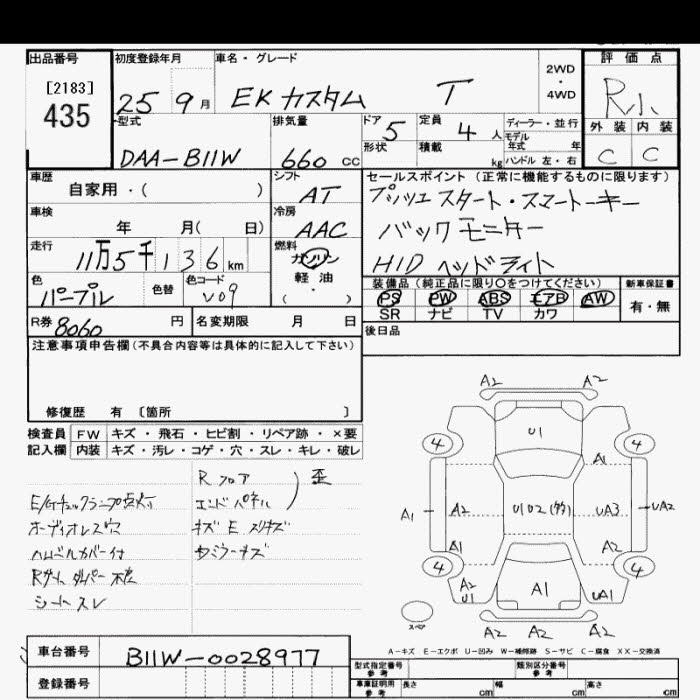 出品番号 初度登録年月 車名・グレード 2WD・4WD 評価点
[2183]
435
25 9月 EKカスタム T R1.
型式 排気量 ドア 5 定員 4人 ディーラー・並行 外装 内装
モデル年式 年
DAA-B11W 660 cc 形状 積載 kg ハンドル 左・右 C C
車歴 シフト セールスポイント (正常に機能するものに限ります)
自家用・( ) AT プッシュスタート・スマートキー
車検 冷房
年 月( 日) AAC バックモニター
走行 燃料
11万5千136km ガソリン HIDヘッドライト
色 色替 色コード 軽油・( ) 装備品 (純正品に限り〇をつけてください) 新車保証書
パープル V09 PS PW ABS エアB AW 有・無
SR ナビ TV カワ
R券 8060円 名変期限 月 日 後日品
注意事項申告欄(不具合内容等は具体的に記入して下さい)
修復歴 有 〔箇所 〕
検査員 FW キズ・飛石・ヒビ割・リペア跡・×要
記入欄 内装 キズ・汚レ・コゲ・穴・スレ・キレ・破レ
Rフロア 歪
E/Gチェックランプ点灯 エンドパネル
オーディオレス穴 キズE スリキズ
ハンドルカバー付
シートスレ
A2 A2
U1
4 4
A1
A1 A2 U1U2(多) UA3 UA2
A1 A2
4 4
A2 U1 A1 UA1
スペア
A2 A2 A2
A-キズ E-エクボ U-凹み W-補修跡 S-サビ C-腐食 XX-交換済
車台番号 B11W-0028977
型式指定番号 参考 類別区分番号 参考
登録番号 車庫証明用 参考 長さ cm 幅 cm 高さ cm